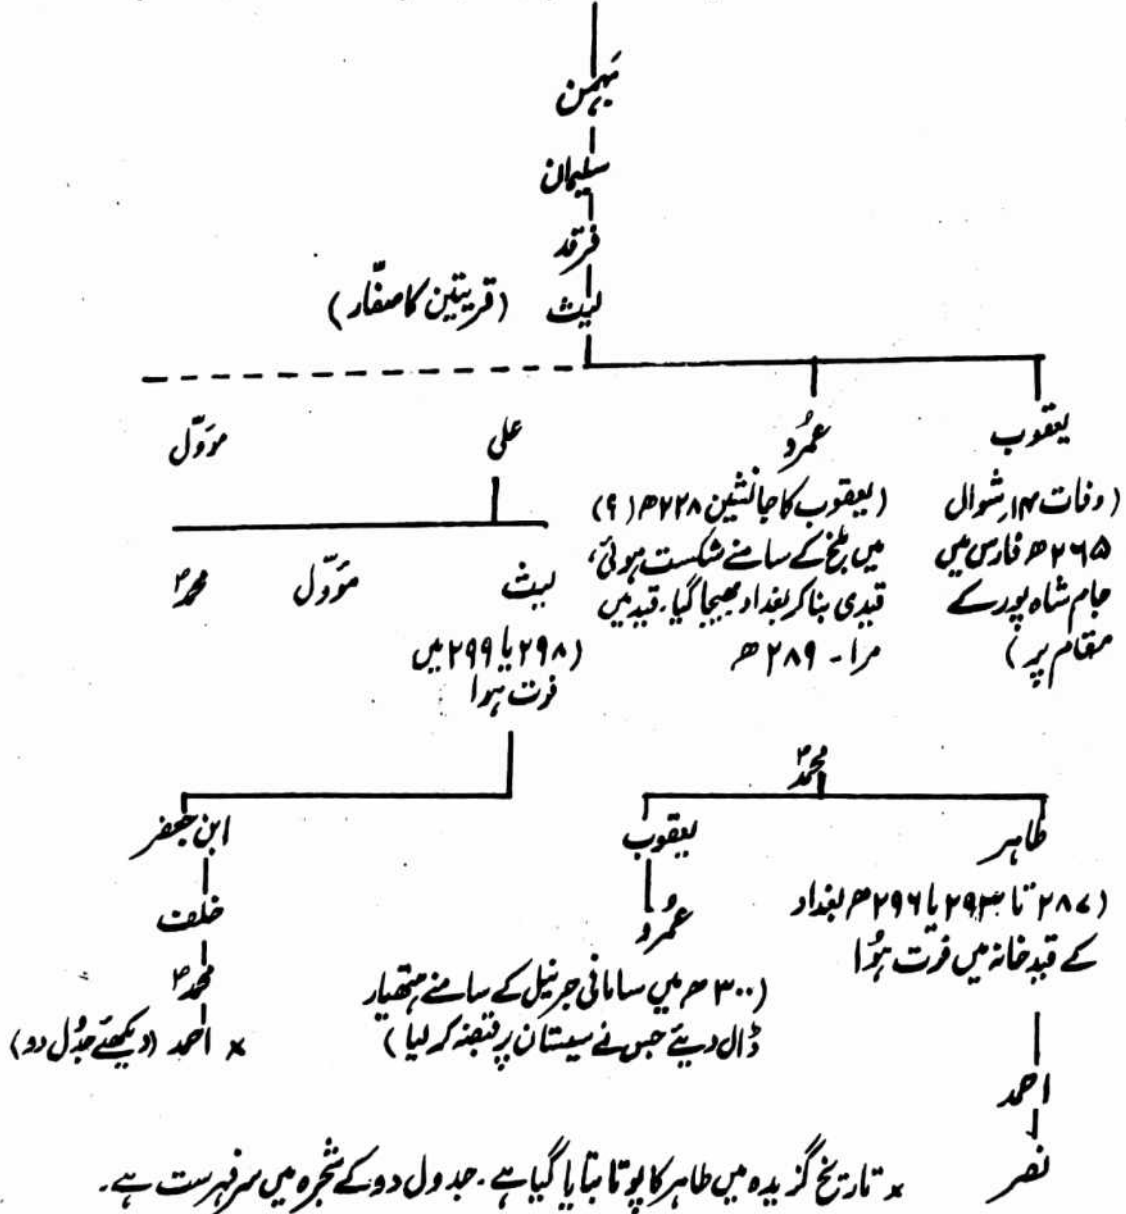 بہمن
سلیمان
فرقد
لیث (قریتین کا صفّار)
یعقوب
(وفات ۱۴ر شوال
۲۶۵ھ فارس میں
جام شاہ پور کے
مقام پر)
عمرُو
(یعقوب کا جانشین ۲۲۸ھ (؟)
میں بلخ کے سامنے شکست ہوئی،
قیدی بنا کر بغداد بھیجا گیا۔ قید میں
مرا۔ ۲۸۹ھ
علی
موَدّل
لیث
موَدّل
محمدؐ
(۲۹۸ یا ۲۹۹ میں
فوت ہوا
محمدؐ
طاہر
یعقوب
ابن جعفر
(۲۸۷ تا ۲۹۳ یا ۲۹۶ھ بغداد
کے قید خانہ میں فوت ہوُا
عمرُو
(۳۰۰ھ میں سامانی جرنیل کے سامنے ہتھیار
ڈال دیئے جس نے سیستان پر قبضہ کر لیا)
خلف
محمدؐ
× احمد (دیکھئے جدول دو)
احمد
نصر
× تاریخ گزیدہ میں طاہر کا پوتا بتایا گیا ہے۔ جدول دو کے شجرہ میں سرفہرست ہے۔